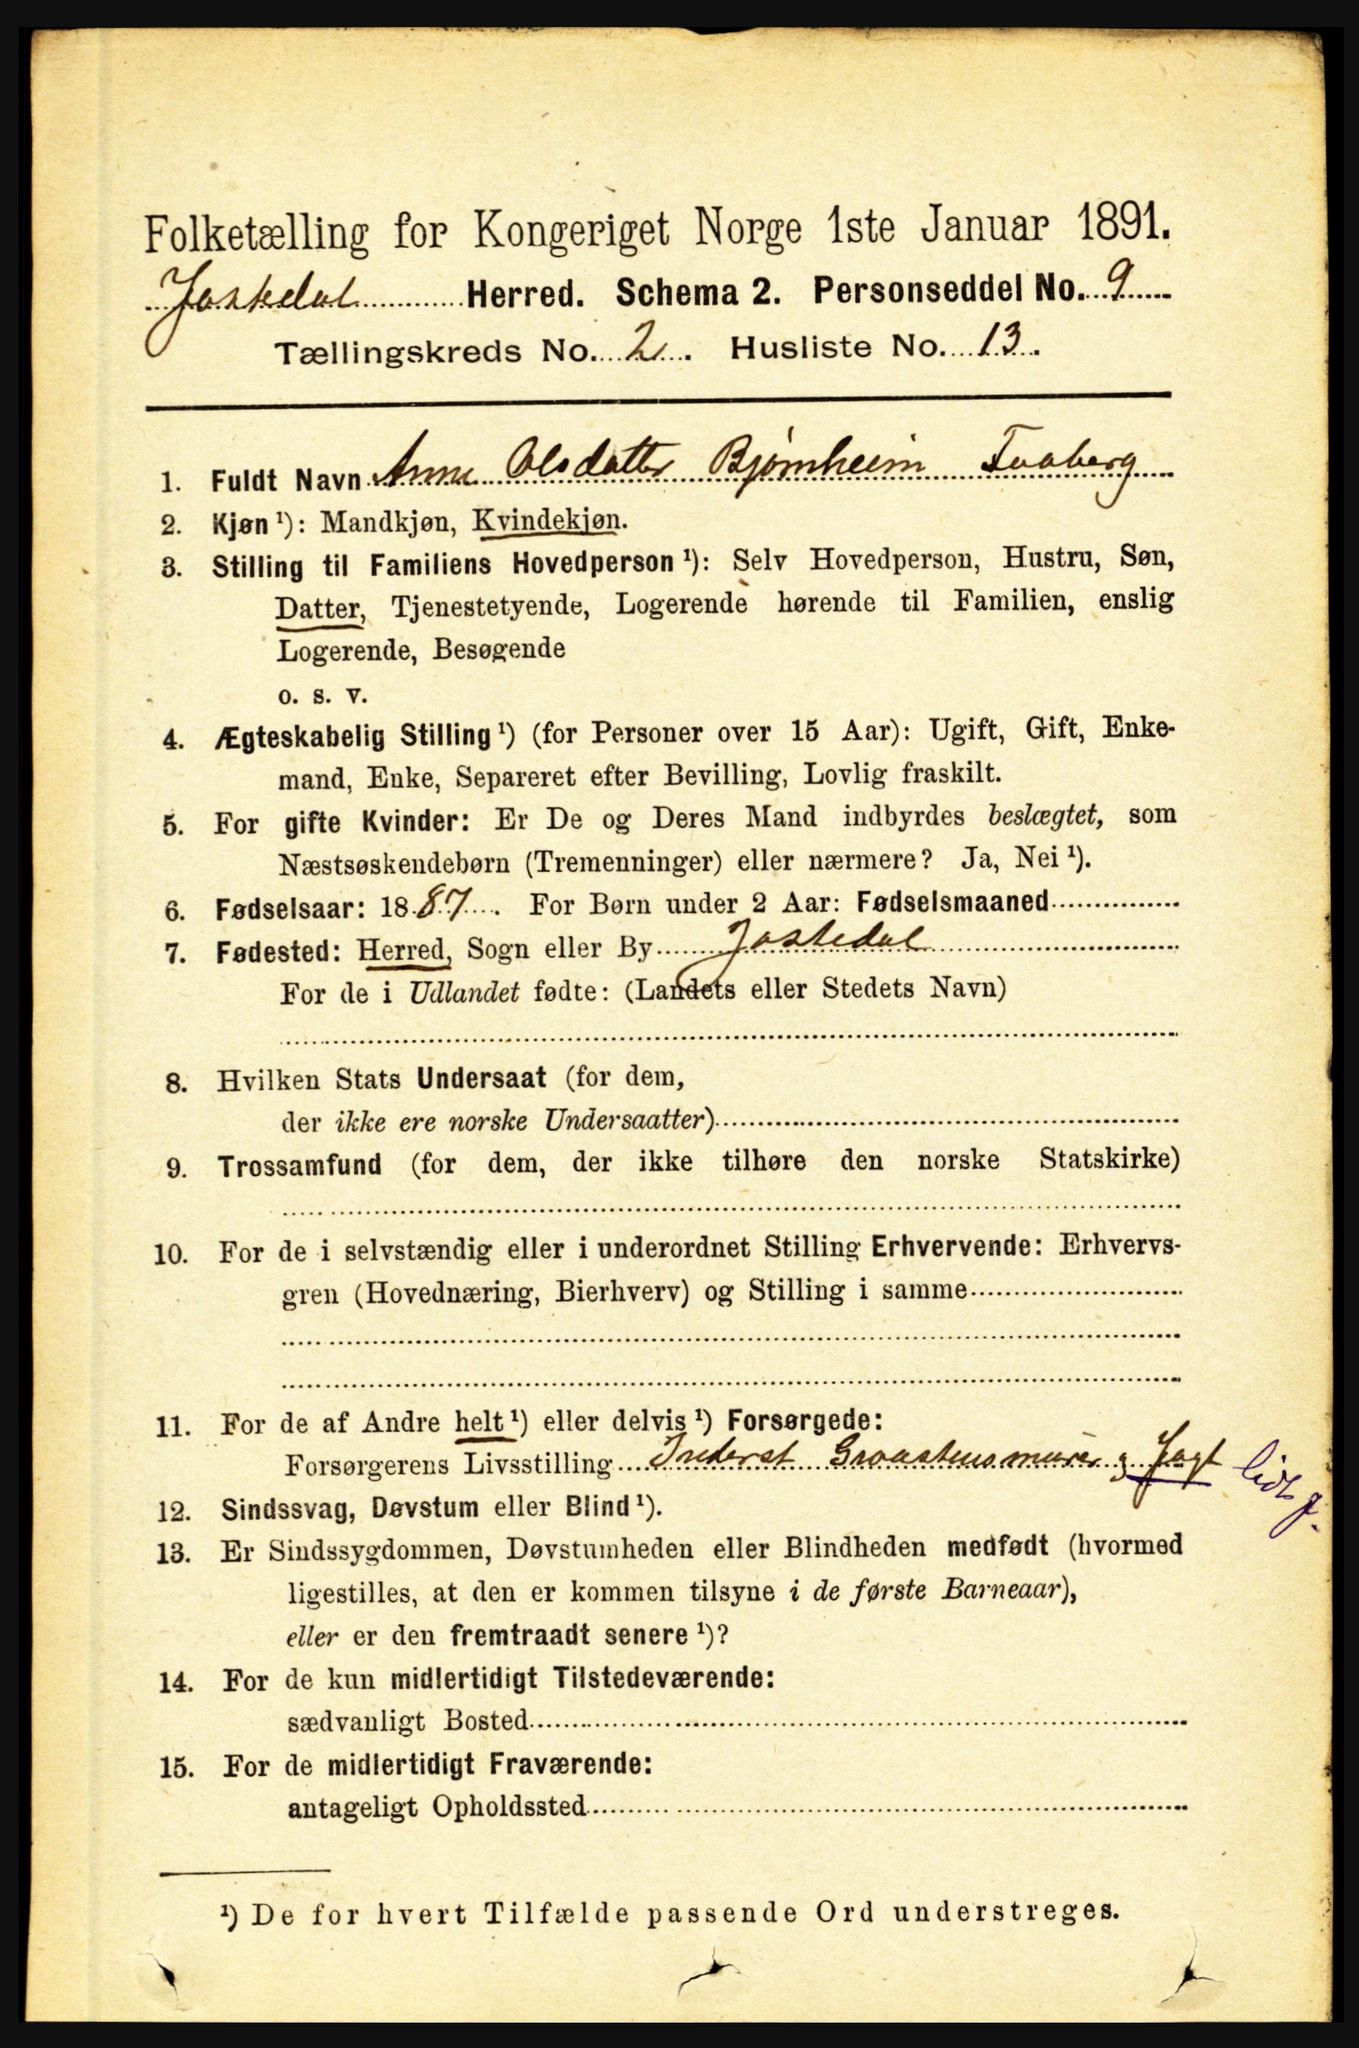 Folketælling for Kongeriget Norge 1ste Januar 1891.
Jostedal Herred. Schema 2. Personseddel No. 9
Tællingskreds No. 2. Husliste No. 13.
1. Fuldt Navn Anne Olsdatter Bjørnheim Faaberg
2. Kjøn ¹): Mandkjøn, Kvindekjøn.
3. Stilling til Familiens Hovedperson ¹): Selv Hovedperson, Hustru, Søn,
Datter, Tjenestetyende, Logerende hørende til Familien, enslig
Logerende, Besøgende
o. s. v.
4. Ægteskabelig Stilling ¹) (for Personer over 15 Aar): Ugift, Gift, Enke-
mand, Enke, Separeret efter Bevilling, Lovlig fraskilt.
5. For gifte Kvinder: Er De og Deres Mand indbyrdes beslægtet, som
Næstsøskendebørn (Tremenninger) eller nærmere? Ja, Nei ¹).
6. Fødselsaar: 1887. For Børn under 2 Aar: Fødselsmaaned
7. Fødested: Herred, Sogn eller By Jostedal
For de i Udlandet fødte: (Landets eller Stedets Navn)
8. Hvilken Stats Undersaat (for dem,
der ikke ere norske Undersaatter)
9. Trossamfund (for dem, der ikke tilhøre den norske Statskirke)
10. For de i selvstændig eller i underordnet Stilling Erhvervende: Erhvervs-
gren (Hovednæring, Bierhverv) og Stilling i samme
11. For de af Andre helt ¹) eller delvis ¹) Forsørgede:
Forsørgerens Livsstilling Inderst Graastensmurer & Jagt
12. Sindssvag, Døvstum eller Blind ¹).
13. Er Sindssygdommen, Døvstumheden eller Blindheden medfødt (hvormed
ligestilles, at den er kommen tilsyne i de første Barneaar),
eller er den fremtraadt senere ¹)?
14. For de kun midlertidigt Tilstedeværende:
sædvanligt Bosted
15. For de midlertidigt Fraværende:
antageligt Opholdssted
¹) De for hvert Tilfælde passende Ord understreges.